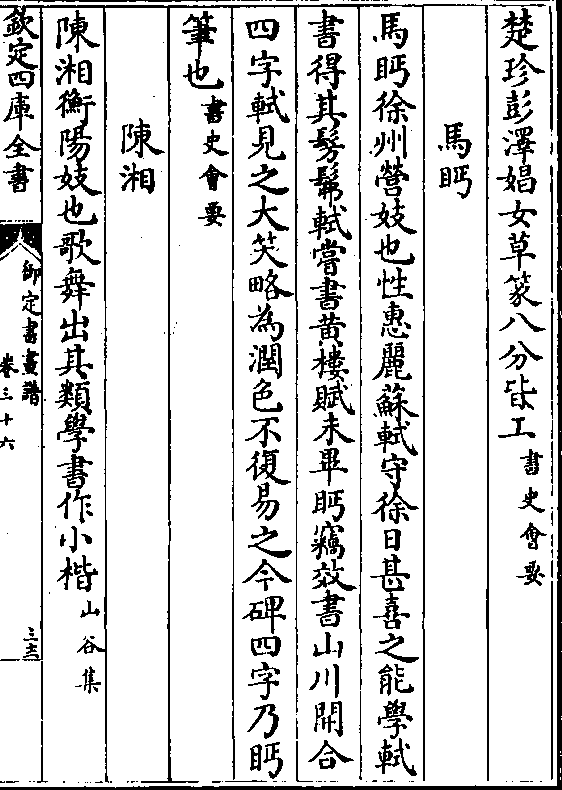 楚珍彭澤娼女草篆八分皆工書史會要
馬盻
馬盻徐州營妓也性惠麗蘇軾守徐日甚喜之能學軾
書得其髣髴軾嘗書黄樓賦未畢盻竊效書山川開合
四字軾見之大笑略為潤色不復易之今碑四字乃盻
筆也書史會要
陳湘
陳湘衡陽妓也歌舞出其類學書作小楷山谷集
欽定四庫全書
御定書畫譜
卷三十六